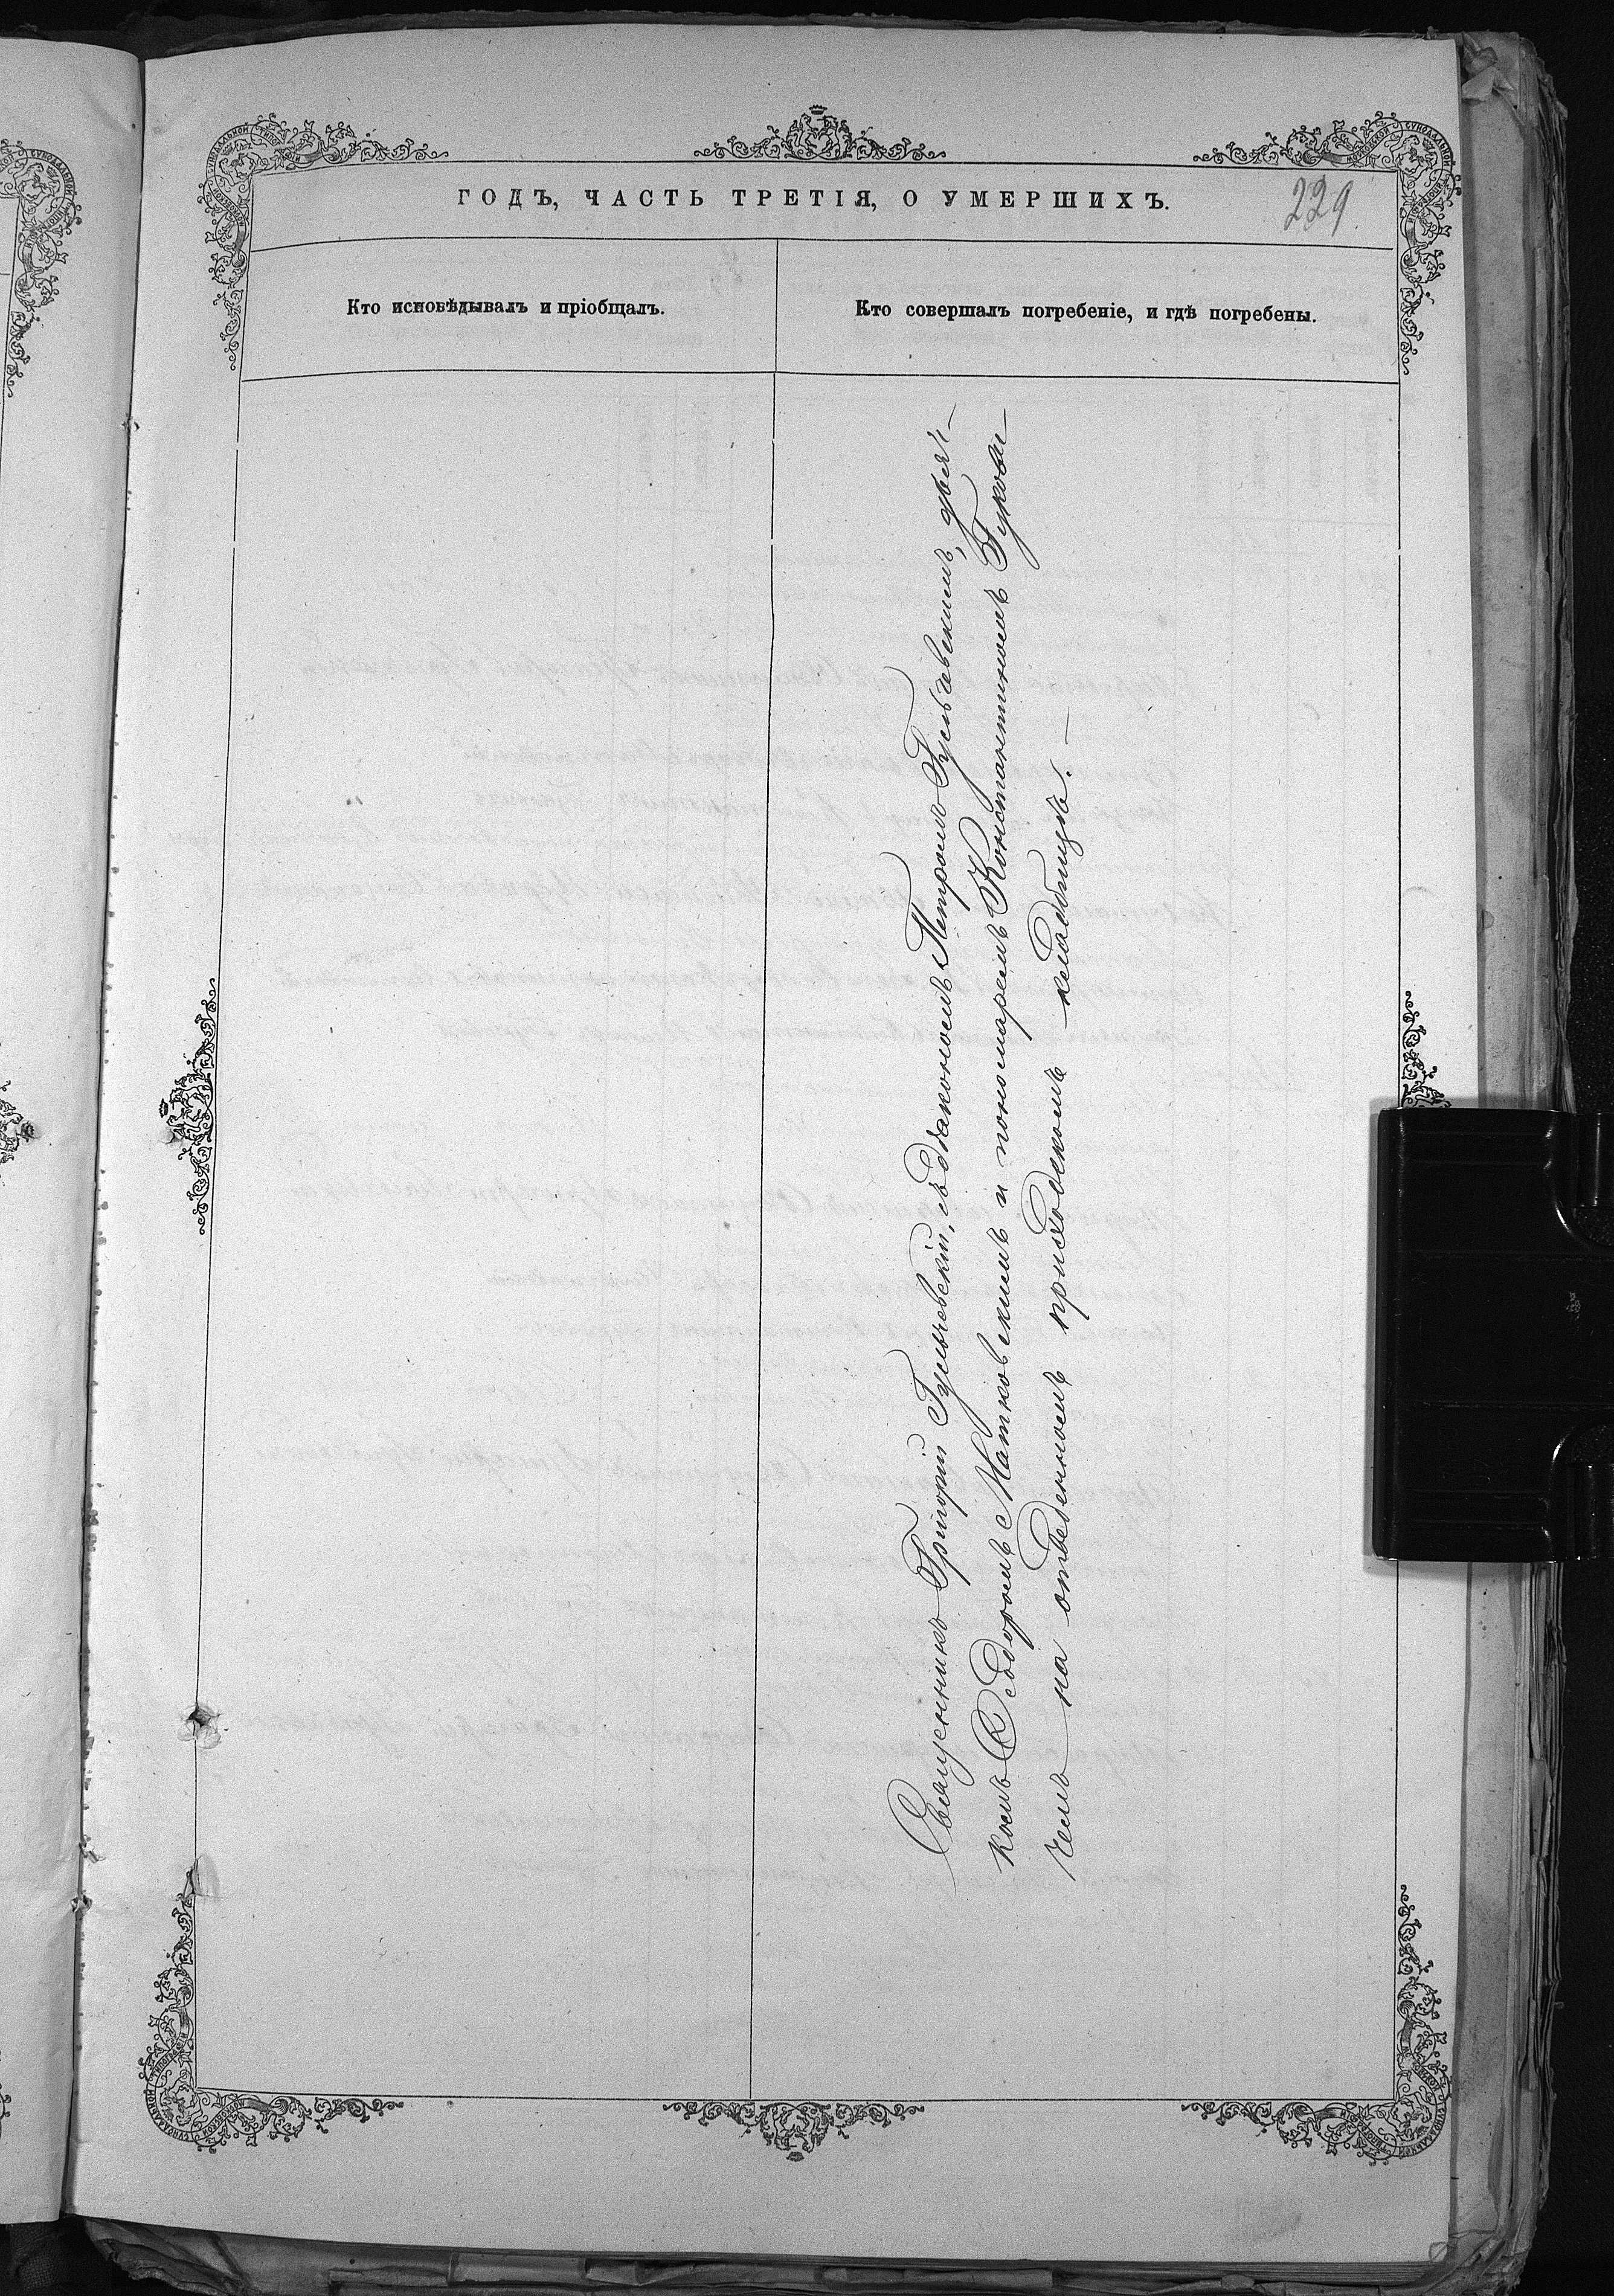 ГОДЪ, ЧАСТЬ ТРЕТІЯ, О УМЕРШИХЪ.
229.
Кто исповѣдывалъ и пріобщалъ.
Кто совершалъ погребеніе, и гдѣ погребены.
Священникъ Григорій Гульчевскій, съ діакономъ Петромъ Гульчевскимъ, дьяч-
комъ Ѳедоромъ Матковскимъ и пономаремъ Константиномъ Букови-
чемъ на отведенномъ приходскомъ кладбищѣ. —